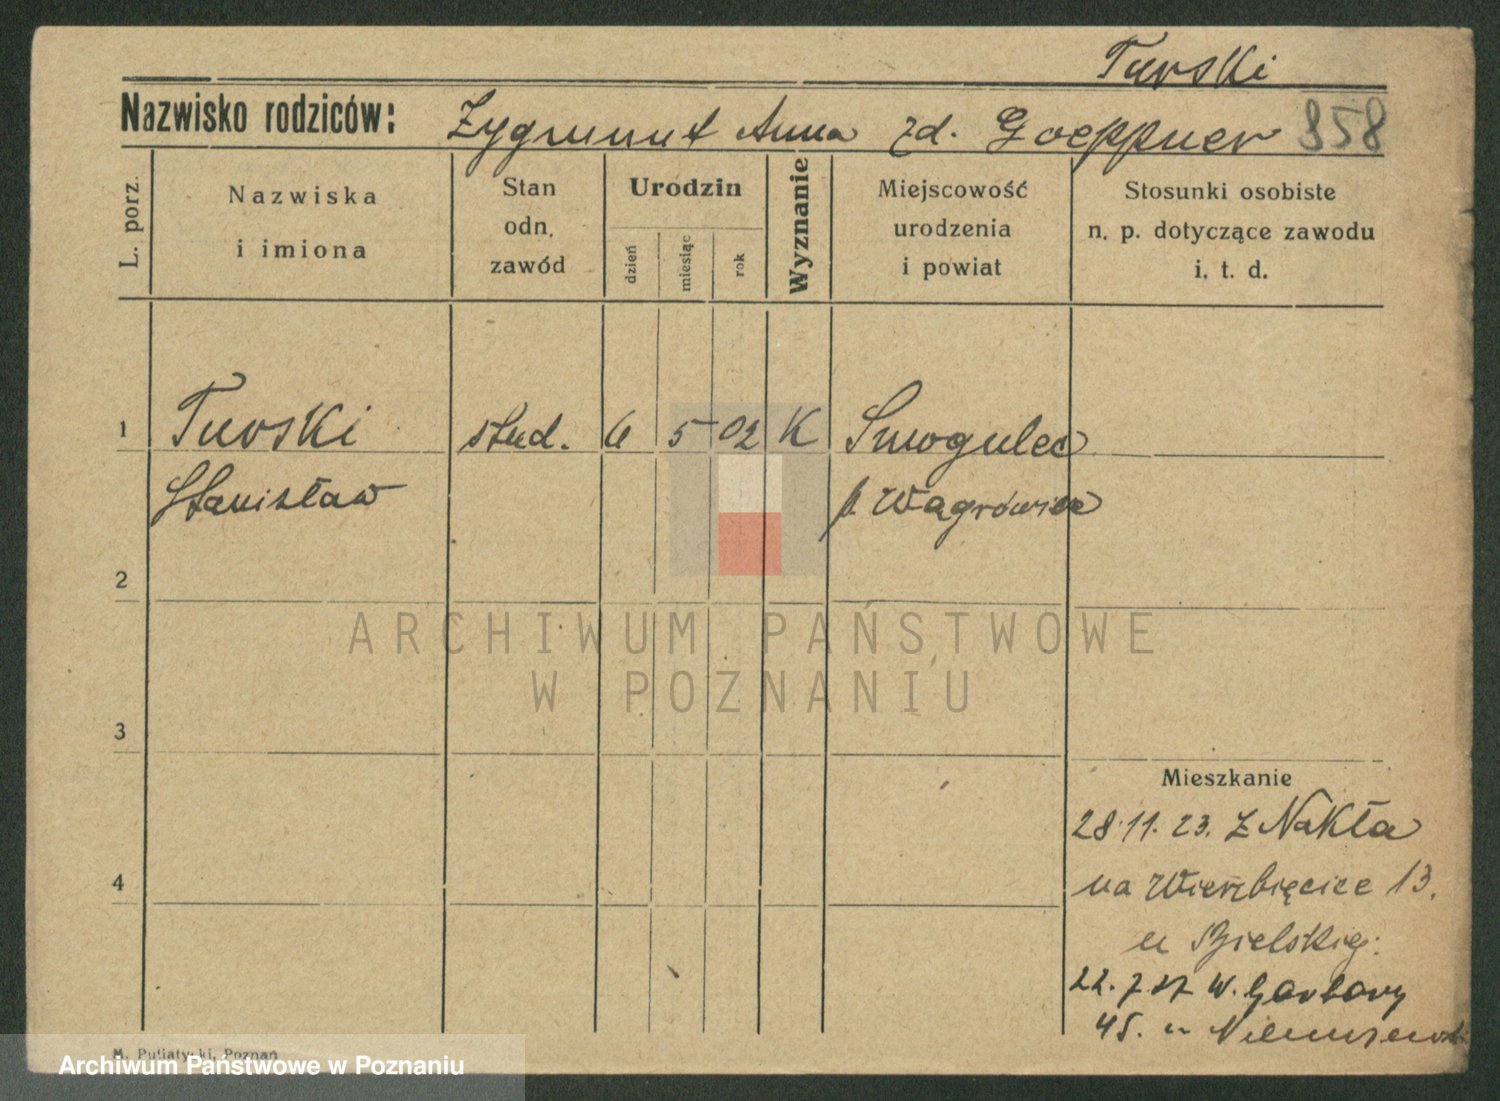 Turski
Nazwisko rodziców: Zygmunt Anna zd. Goeppner 858
L. porz.
Nazwiska
i imiona
Stan
odn.
zawód
Urodzin
dzień miesiąc rok
Wyznanie
Miejscowość
urodzenia
i powiat
Stosunki osobiste
n. p. dotyczące zawodu
i. t. d.
1 Turski stud. 6 5 02 K Smogulec
Stanisław p. Wągrówiec
2
ARCHIWUM PAŃSTWOWE
W POZNANIU
3
Mieszkanie
28.11.23. z Nakła
4
na Wierzbięcice 13.
u Bielskiej.
22.7.27 W. Garbary
45. u
M. Putiatycki, Poznań
Archiwum Państwowe w Poznaniu